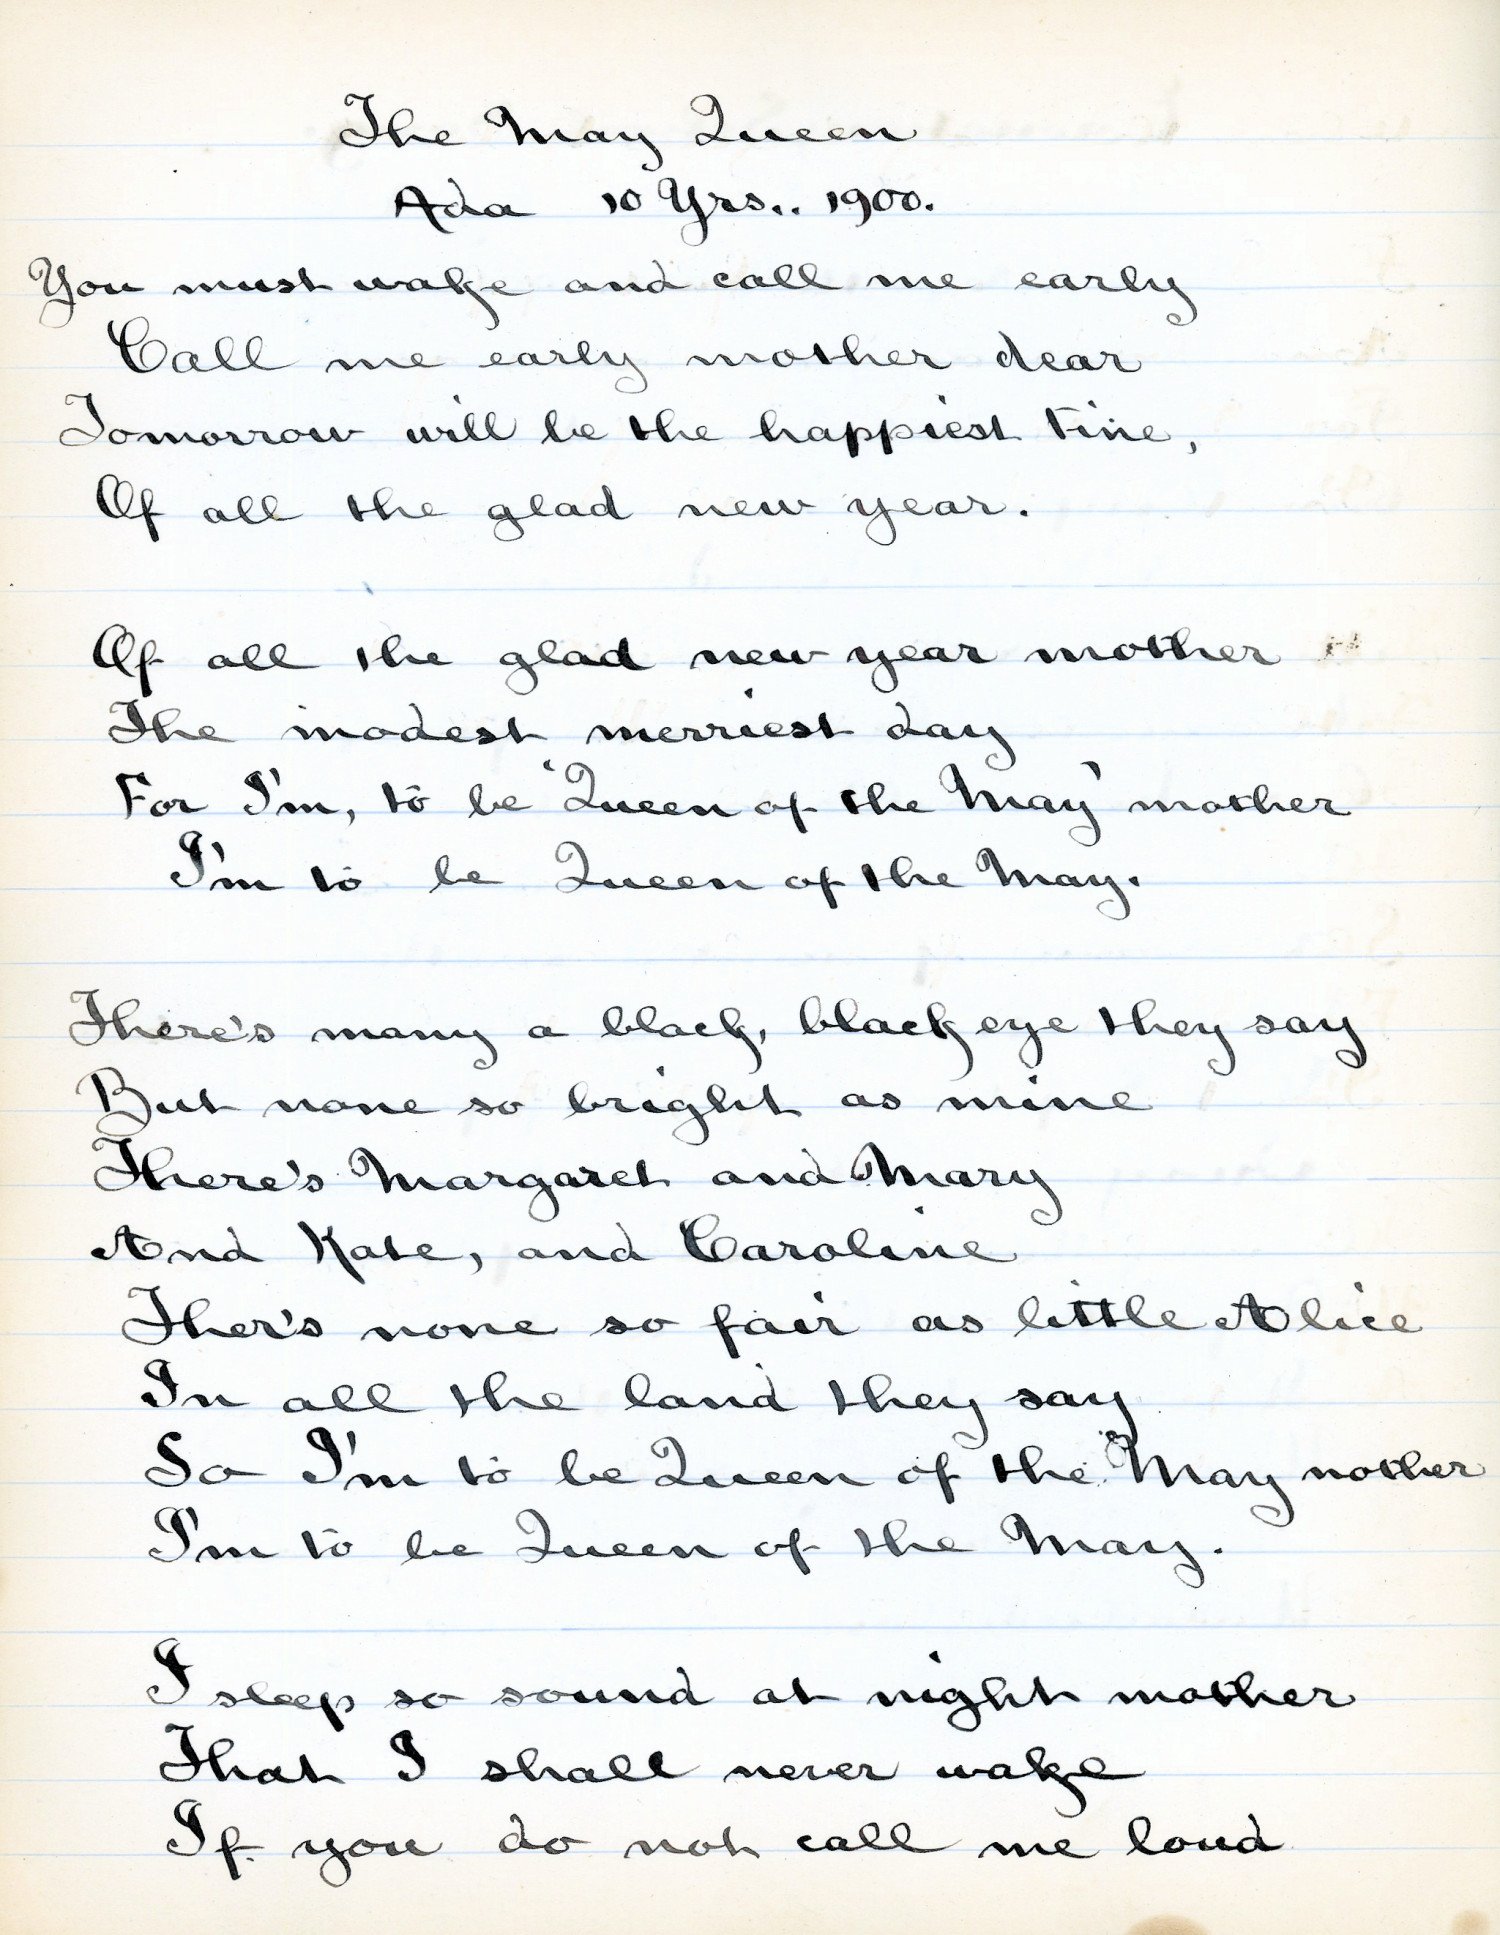 The May Queen
Ada 10 Yrs.. 1900.
You must wake and call me early
Call me early mother dear
Tomorrow will be the happiest time,
Of all the glad new year.
Of all the glad new year mother
The modest merriest day
For I'm, to be 'Queen of the May' mother
I'm to be Queen of the May.
There's many a black, black eye they say
But none so bright as mine
There's Margaret and Mary
And Kate, and Caroline
Ther's none so fair as little Alice
In all the land they say
So I'm to be Queen of the May mother
I'm to be Queen of the May.
I sleep so sound at night mother
That I shall never wake
If you do not call me loud